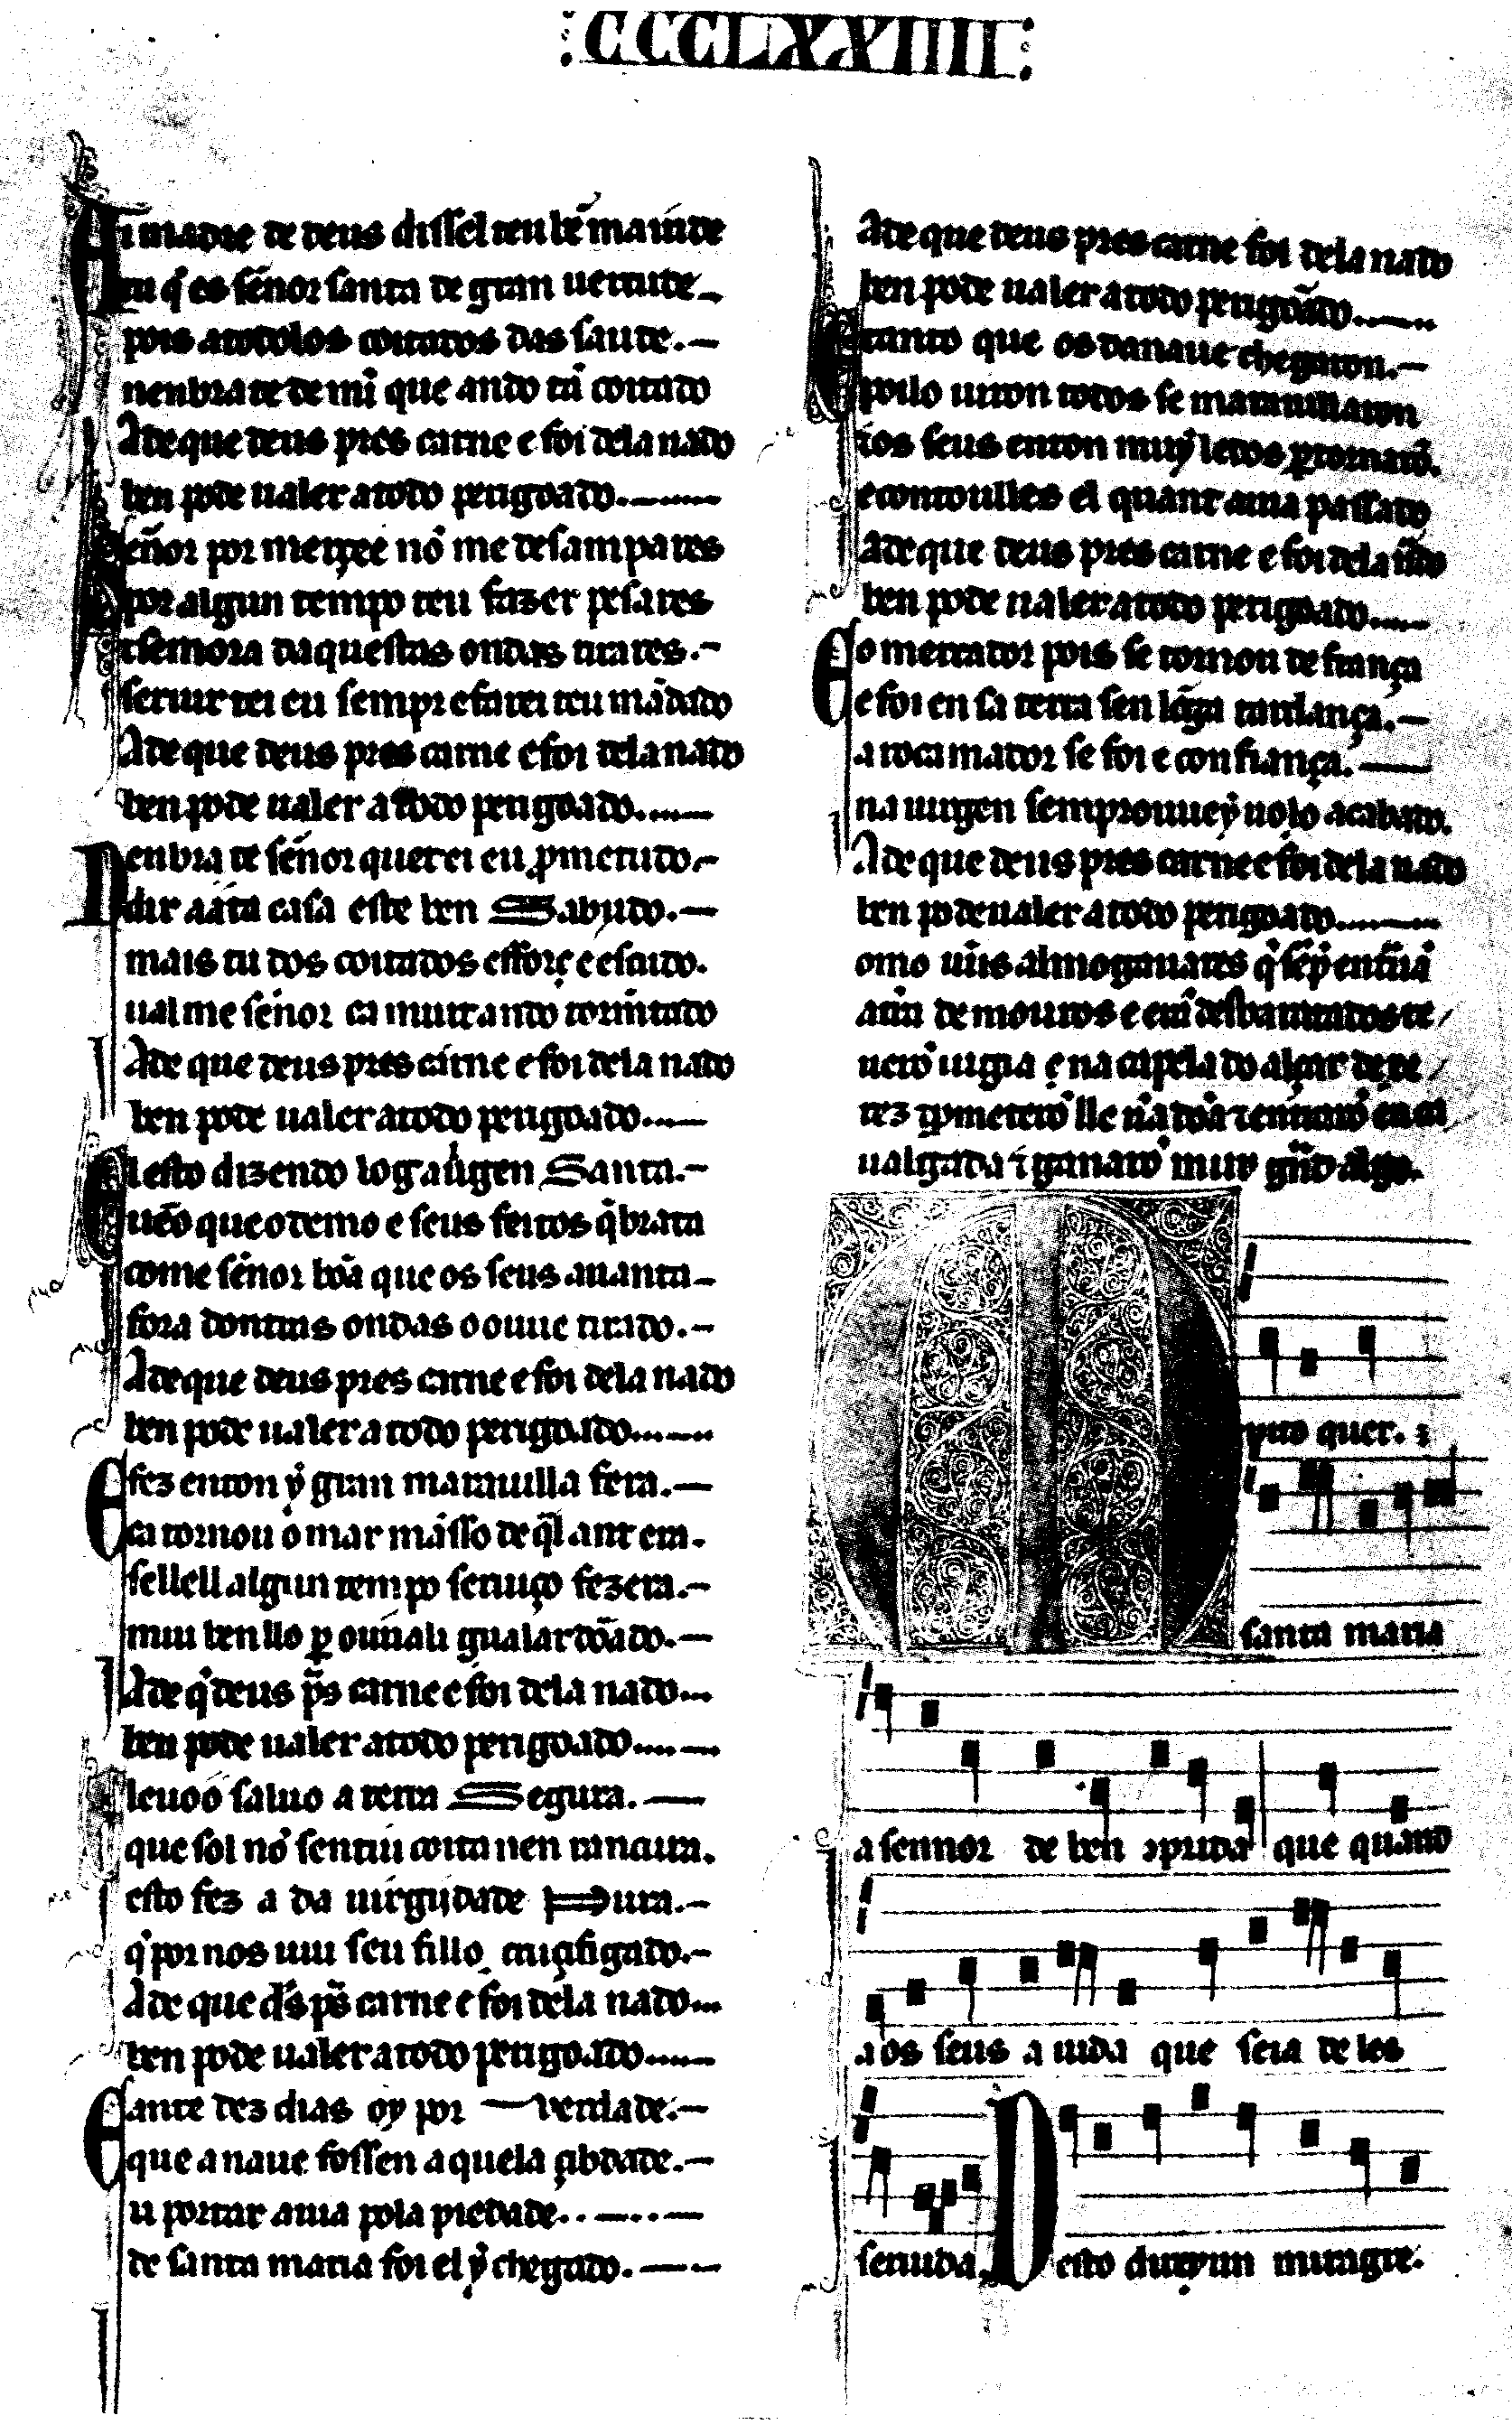 :CCCLXXIIII:
Ai madre de deus dissel teu bẽ maiude
tu q̇ es sẽnor santa de gran uertude.
pois atodolos coitados das saude.
nenbrate de mi que ando tã coitado
Ade que deus pres carne e foi dela nado
ben pode ualer atodo perigoado.
Señor por merçee nõ me desampares
por algun tempo teu fazer pesares
esemora daquestas ondas tirares.
seruir tei eu sempr efarei teu mãdado
Ade que deus pres carne e foi dela nado
ben pode ualer atodo perigoado.
Nenbra te sẽnor querei eu ꝓmetudo
dir aáta casa este ben Sabudo.
mais tu dos coitados efforç e escudo.
ualme sẽnor ca muit ando tormẽtado
Ade que deus pres carne e foi dela nado
ben pode ualer atodo perigoado.
El esto dizendo log aũgen Santa.
ueõ que o demo e seus feitos q̇branta
come sẽnor bõa que os seus auanta
fora dontras ondas o ouue tirado.
Ade que deus pres carne e foi dela nado
ben pode ualer atodo perigoado.
E fez enton ẏ gran marauilla fera.
ca tornou o mar mãsso de q̇l ant era.
sellell algun tempo seruiço fezera.
mui ben llo ꝑ ouũali gualardõado.
Ade q̇ deus p̃s carne e foi dela nado
ben pode ualer atodo perigoado.
leuoo saluo a terra Segura.
que sol nõ sentiu coita nen rancura.
esto fez a da uirgijdade Pura.
q̇ por nos uiu seu fillo cruçifigado.
Ade que d̃s p̃s carne e foi dela nado
ben pode ualer atodo perigoado.
E ante dez dias oy por uerdade.
que a naue fossen aquela çibdade.
u portar auia pola piedade.
de santa maria foi el ẏ chegado.
Ade que deus pres carne foi dela nado
ben pode ualer atodo perigoãdo.
E tanto que os danaue chegaron.
poilo uiron todos se marauillaron
tos seus enton muẏ ledos ꝑ tornarõ.
econtoulles el quant auia passado
Ade que deus pres carne e foi dela ñdo
ben pode ualer atodo perigoado.
E o mercador pois se tornou de frança
e foi en sa terra sen lõga tardança.
a rocamador se foi e con fiança.
na uirgen sempr ouuey uolo acabado.
Ade que deus pres carne e foi dela nado
ben pode ualer atodo perigoado.
omo ũus almogauares q̇ sẽp̃ entrauã
atrrã de mouros e erã desbaratados te
uerõ uigia e na capela do alcaçar de xe
rez ꝓmeterõ lle ũa dõa tentrarõ en ca
ualgada i ganarõ muy grãd algo.
M
uito quer.
santa maria
a sennor de ben ꝯprida que quand
aos seus a iuda que seia deles
seruida. Desto direy un miragre.